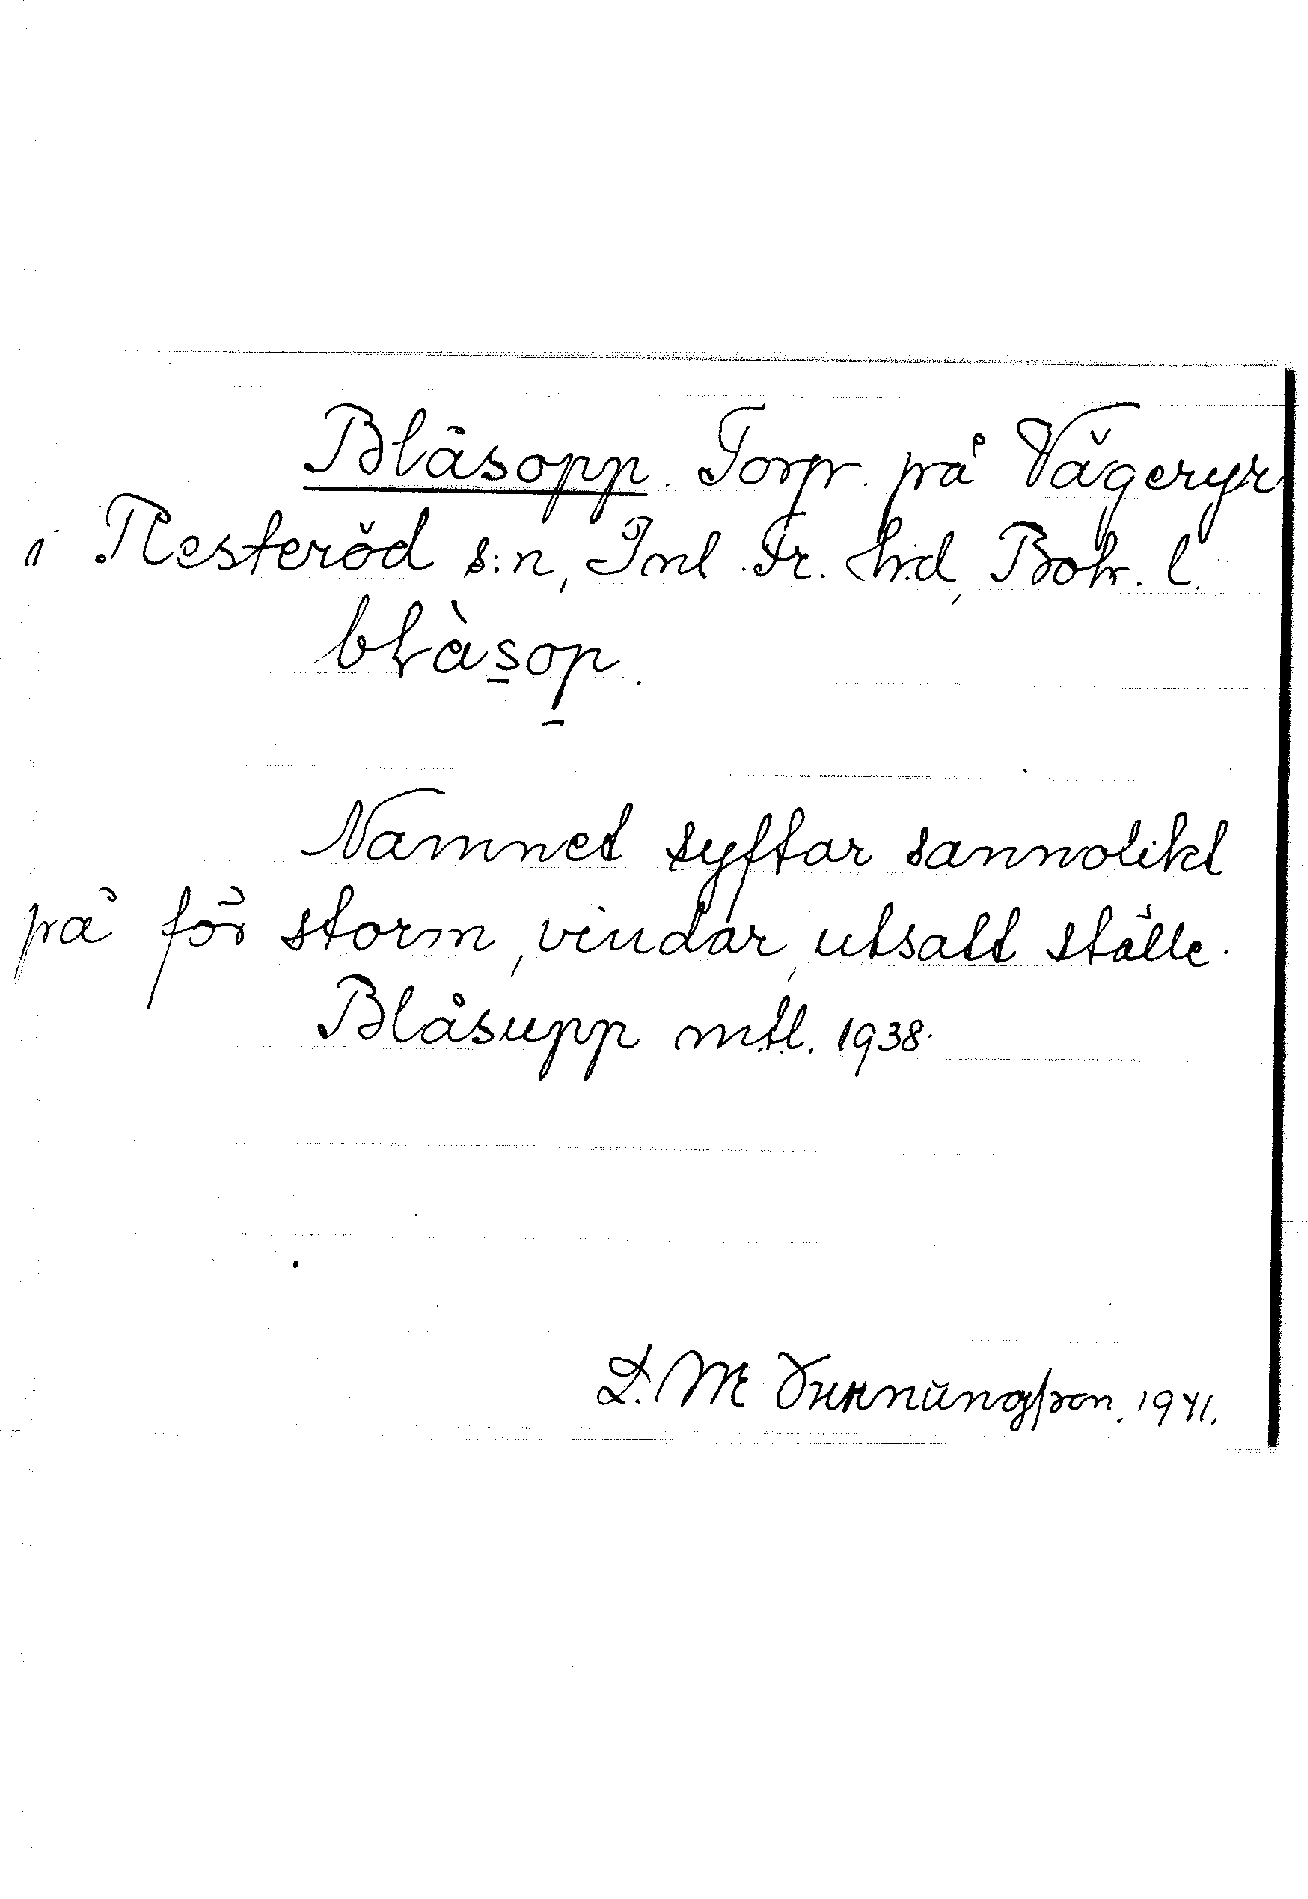 Blåsopp. Torp. på Vägeryr
i Resteröd s:n, Inl. Fr. hd, Boh. l.
blàsop.
Namnet syftar sannolikt
på för storm, vindar, utsatt ställe.
Blåsupp mtl. 1938.
D. M 1941.